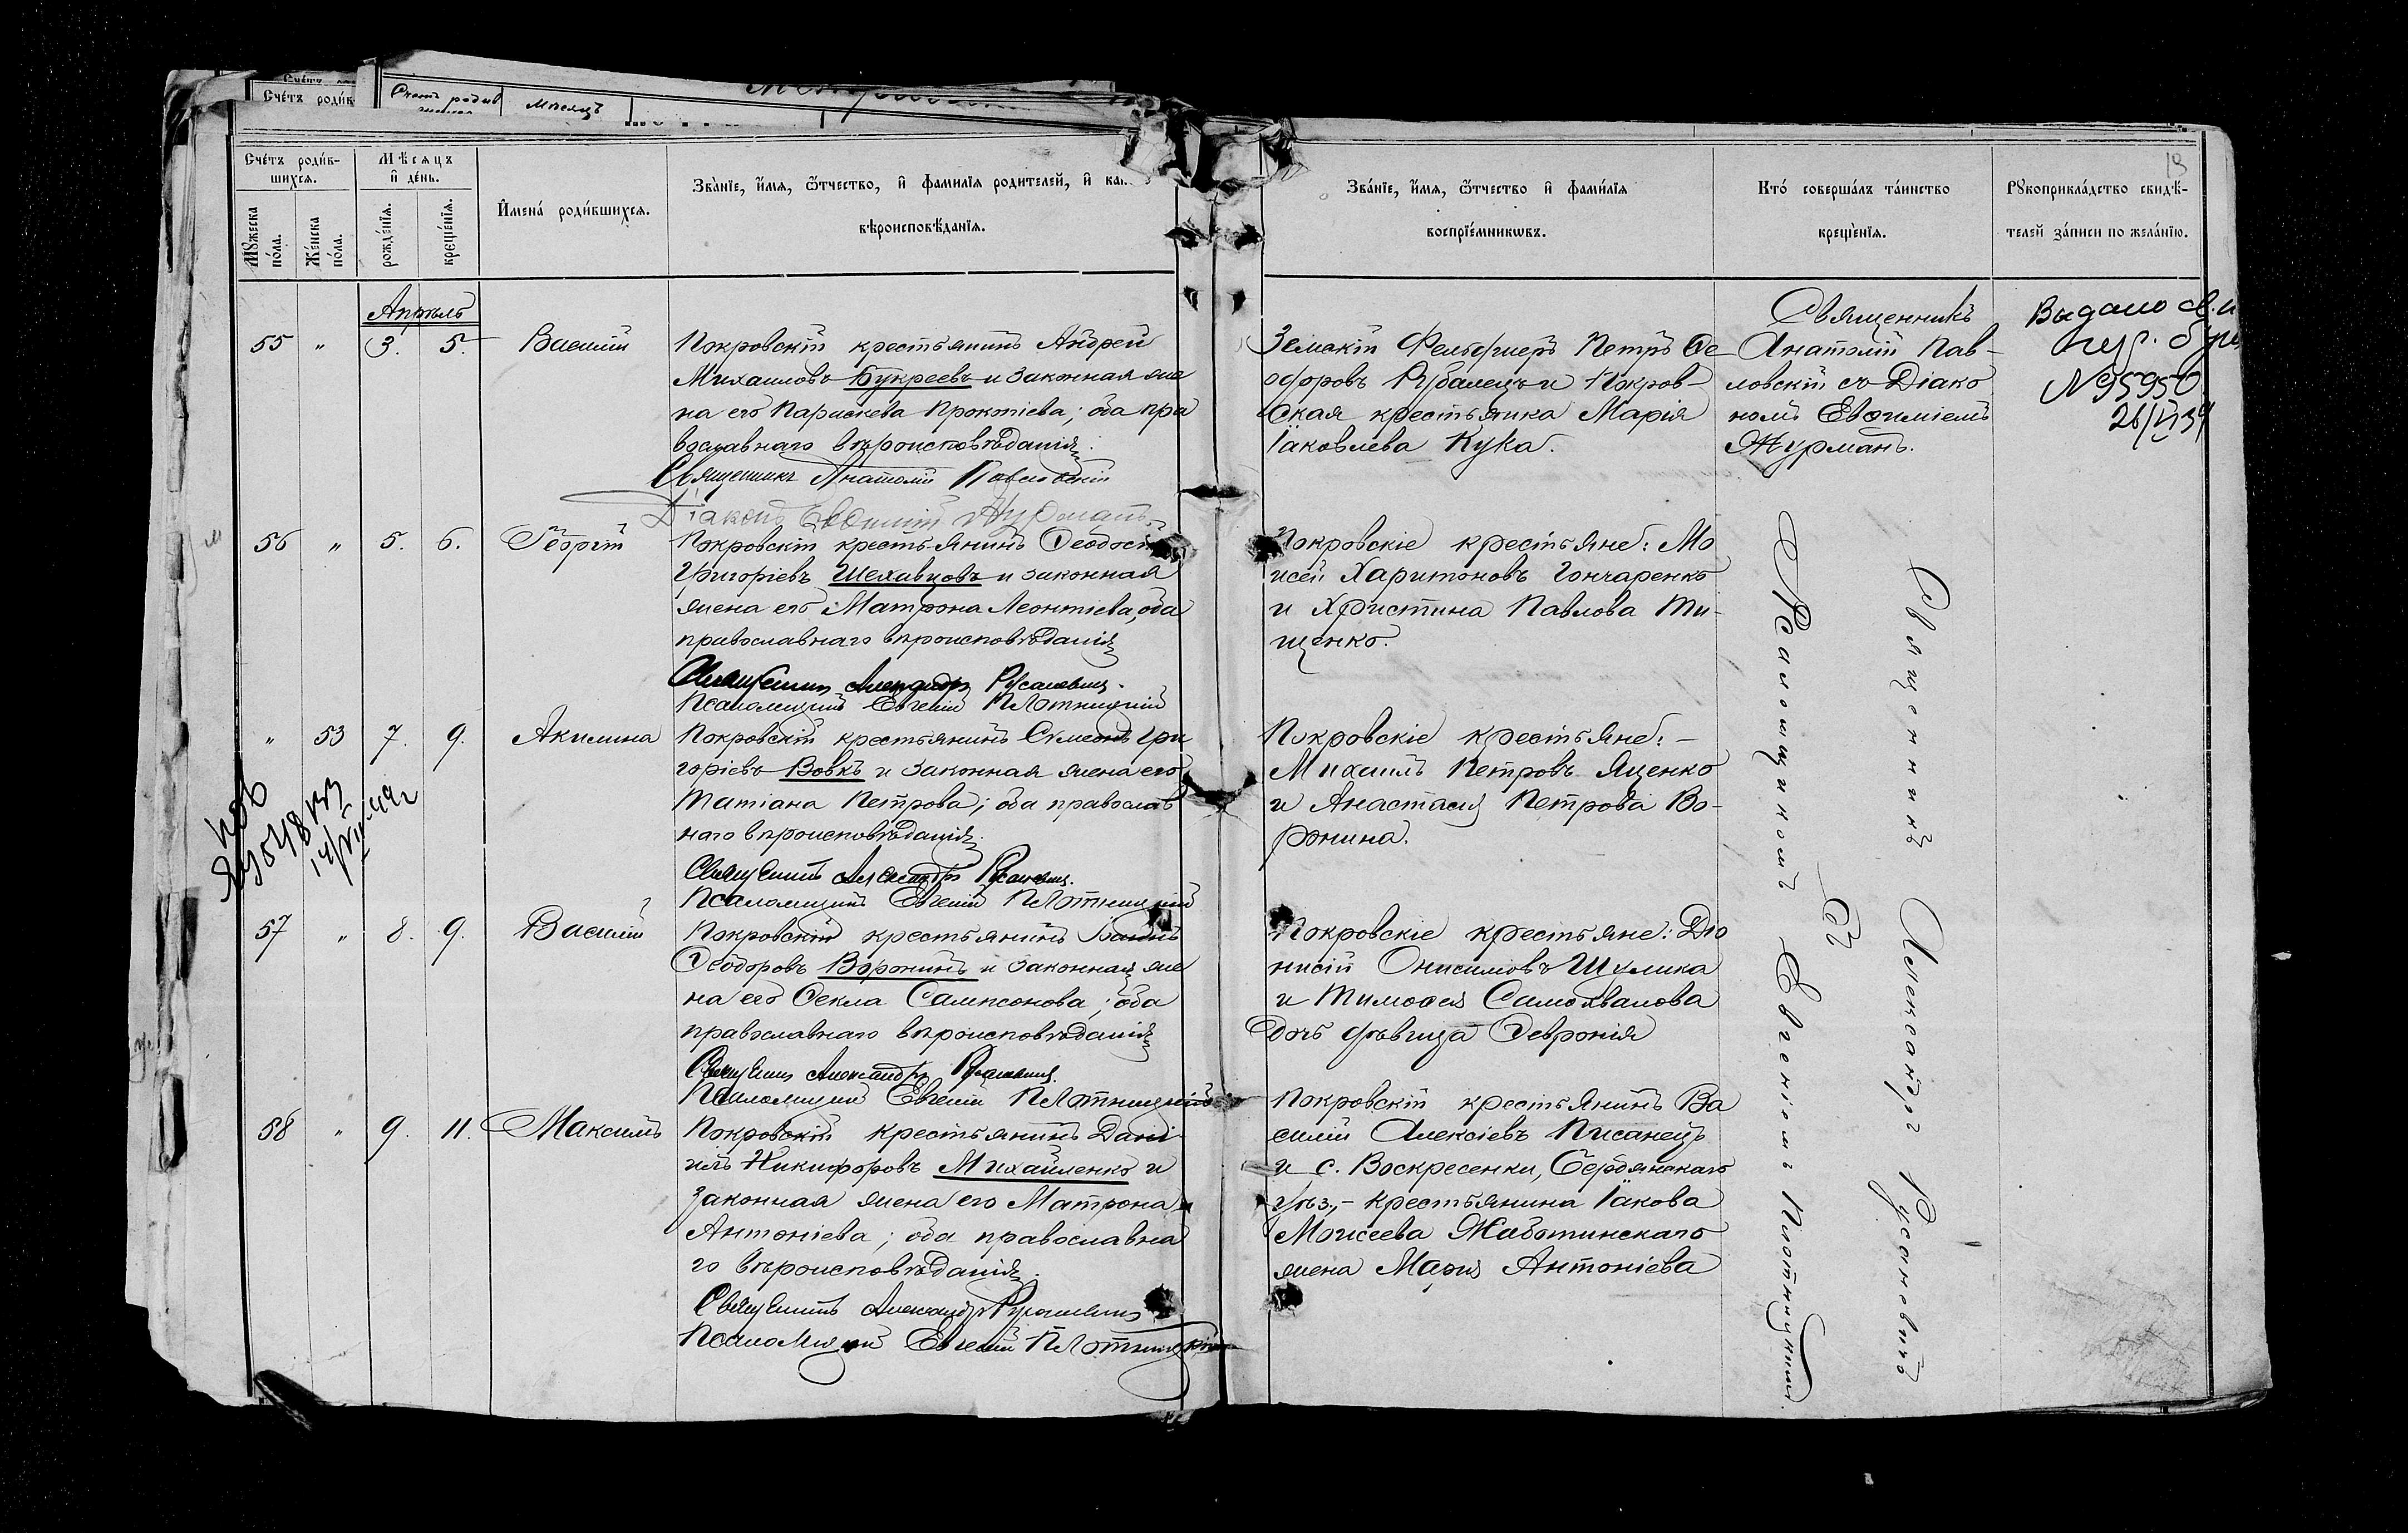 Счетъ родив
Счетъ родив
Мѣсяцъ
13
Счётъ роди́в-
шихся.
Мѣсяцъ
и҆ де́нь.
Мꙋжеска
по́ла.
Же́нска
по́ла.
рожде́нїѧ.
креще́нїѧ.
И҆мена́ роди́вшихсѧ.
Зва́нїе, и҆́мѧ, ѻ҆́тчество, и҆ фами́лїѧ роди́телей, и҆
вѣроисповѣ́данїѧ.
Зва́нїе, и҆́мѧ, ѻ҆́тчество и҆ фами́лїѧ
воспрїе́мникѡвъ.
Кто́ соверша́лъ та́инство
креще́нїѧ.
Рꙋкоприкла́дство свидѣ́-
телей за́писи по жела́нїю.
Апрѣль
55 " 3. 5. Василій
Покровскій крестьянинъ Андрей
Михаиловъ Букреевъ и законная же
на его Параскева Прокопіева; оба пра
вославнаго вѣроисповѣданія.
Священникъ Анатолій Павловскій
Діаконъ Евѳимій Журманъ
Земскій Фельдшеръ Петръ Ѳе
одоровъ Рубанецъ и Покров-
ская крестьянка Марія
Іаковлева Кука.
Священникъ
Анатолій Пав-
ловскій съ Діако
номъ Евѳиміемъ
Журманъ.
Выдано
№ 95950
26/VI 39
56 " 5. 6. Георгій
Покровскій крестьянинъ Ѳеодосій
Григоріевъ Шехавцовъ и законная
жена его Матрона Леонтіева, оба
православнаго вѣроисповѣданія
Священникъ Александръ Русановичъ.
Псаломщикъ Евгеній Плотницкій
Покровскіе крестьяне: Мо
исей Харитоновъ Гончаренко
и Христина Павлова Ти-
щенко.
" 53 7. 9. Акилина
Покровскій крестьянинъ Сѵмеонъ Гри
горіевъ Вовкъ и законная жена его
Татіана Петрова; оба православ
наго вѣроисповѣданія.
Священникъ Александръ Русановичъ.
Псаломщикъ Евгеній Плотницкій
Покровскіе крестьяне: -
Михаилъ Петровъ Яценко
и Анастасія Петрова Во-
ронина.
57 " 8. 9. Василій
Покровскій крестьянинъ
Ѳеодоровъ Воронинъ и законная же
на его Ѳекла Сампсонова; оба
православнаго вѣроисповѣданія
Священникъ Александръ Русановичъ.
Псаломщикъ Евгеній Плотницкій
Покровскіе крестьяне: Діо
нисій Онисимовъ Шулика
и Тимоѳея Самохвалова
дочь дѣвица Ѳевронія
58 " 9. 11. Максимъ
Покровскій крестьянинъ Дані
илъ Никифоровъ Михайленко и
законная жена его Матрона
Антоніева; оба православна
го вѣроисповѣданія.
Священникъ Александръ Русановичъ
Псаломщикъ Евгеній Плотницкій
Покровскій крестьянинъ Ва
силій Алексіевъ Писанецъ
и с. Воскресенки, Бердянскаго
уѣз,- крестьянина Іакова
Моисеева Жаботинскаго
жена Марія Антоніева
Священникъ Александръ Русановичъ
съ Псаломщикомъ Евгеніемъ Плотницкимъ